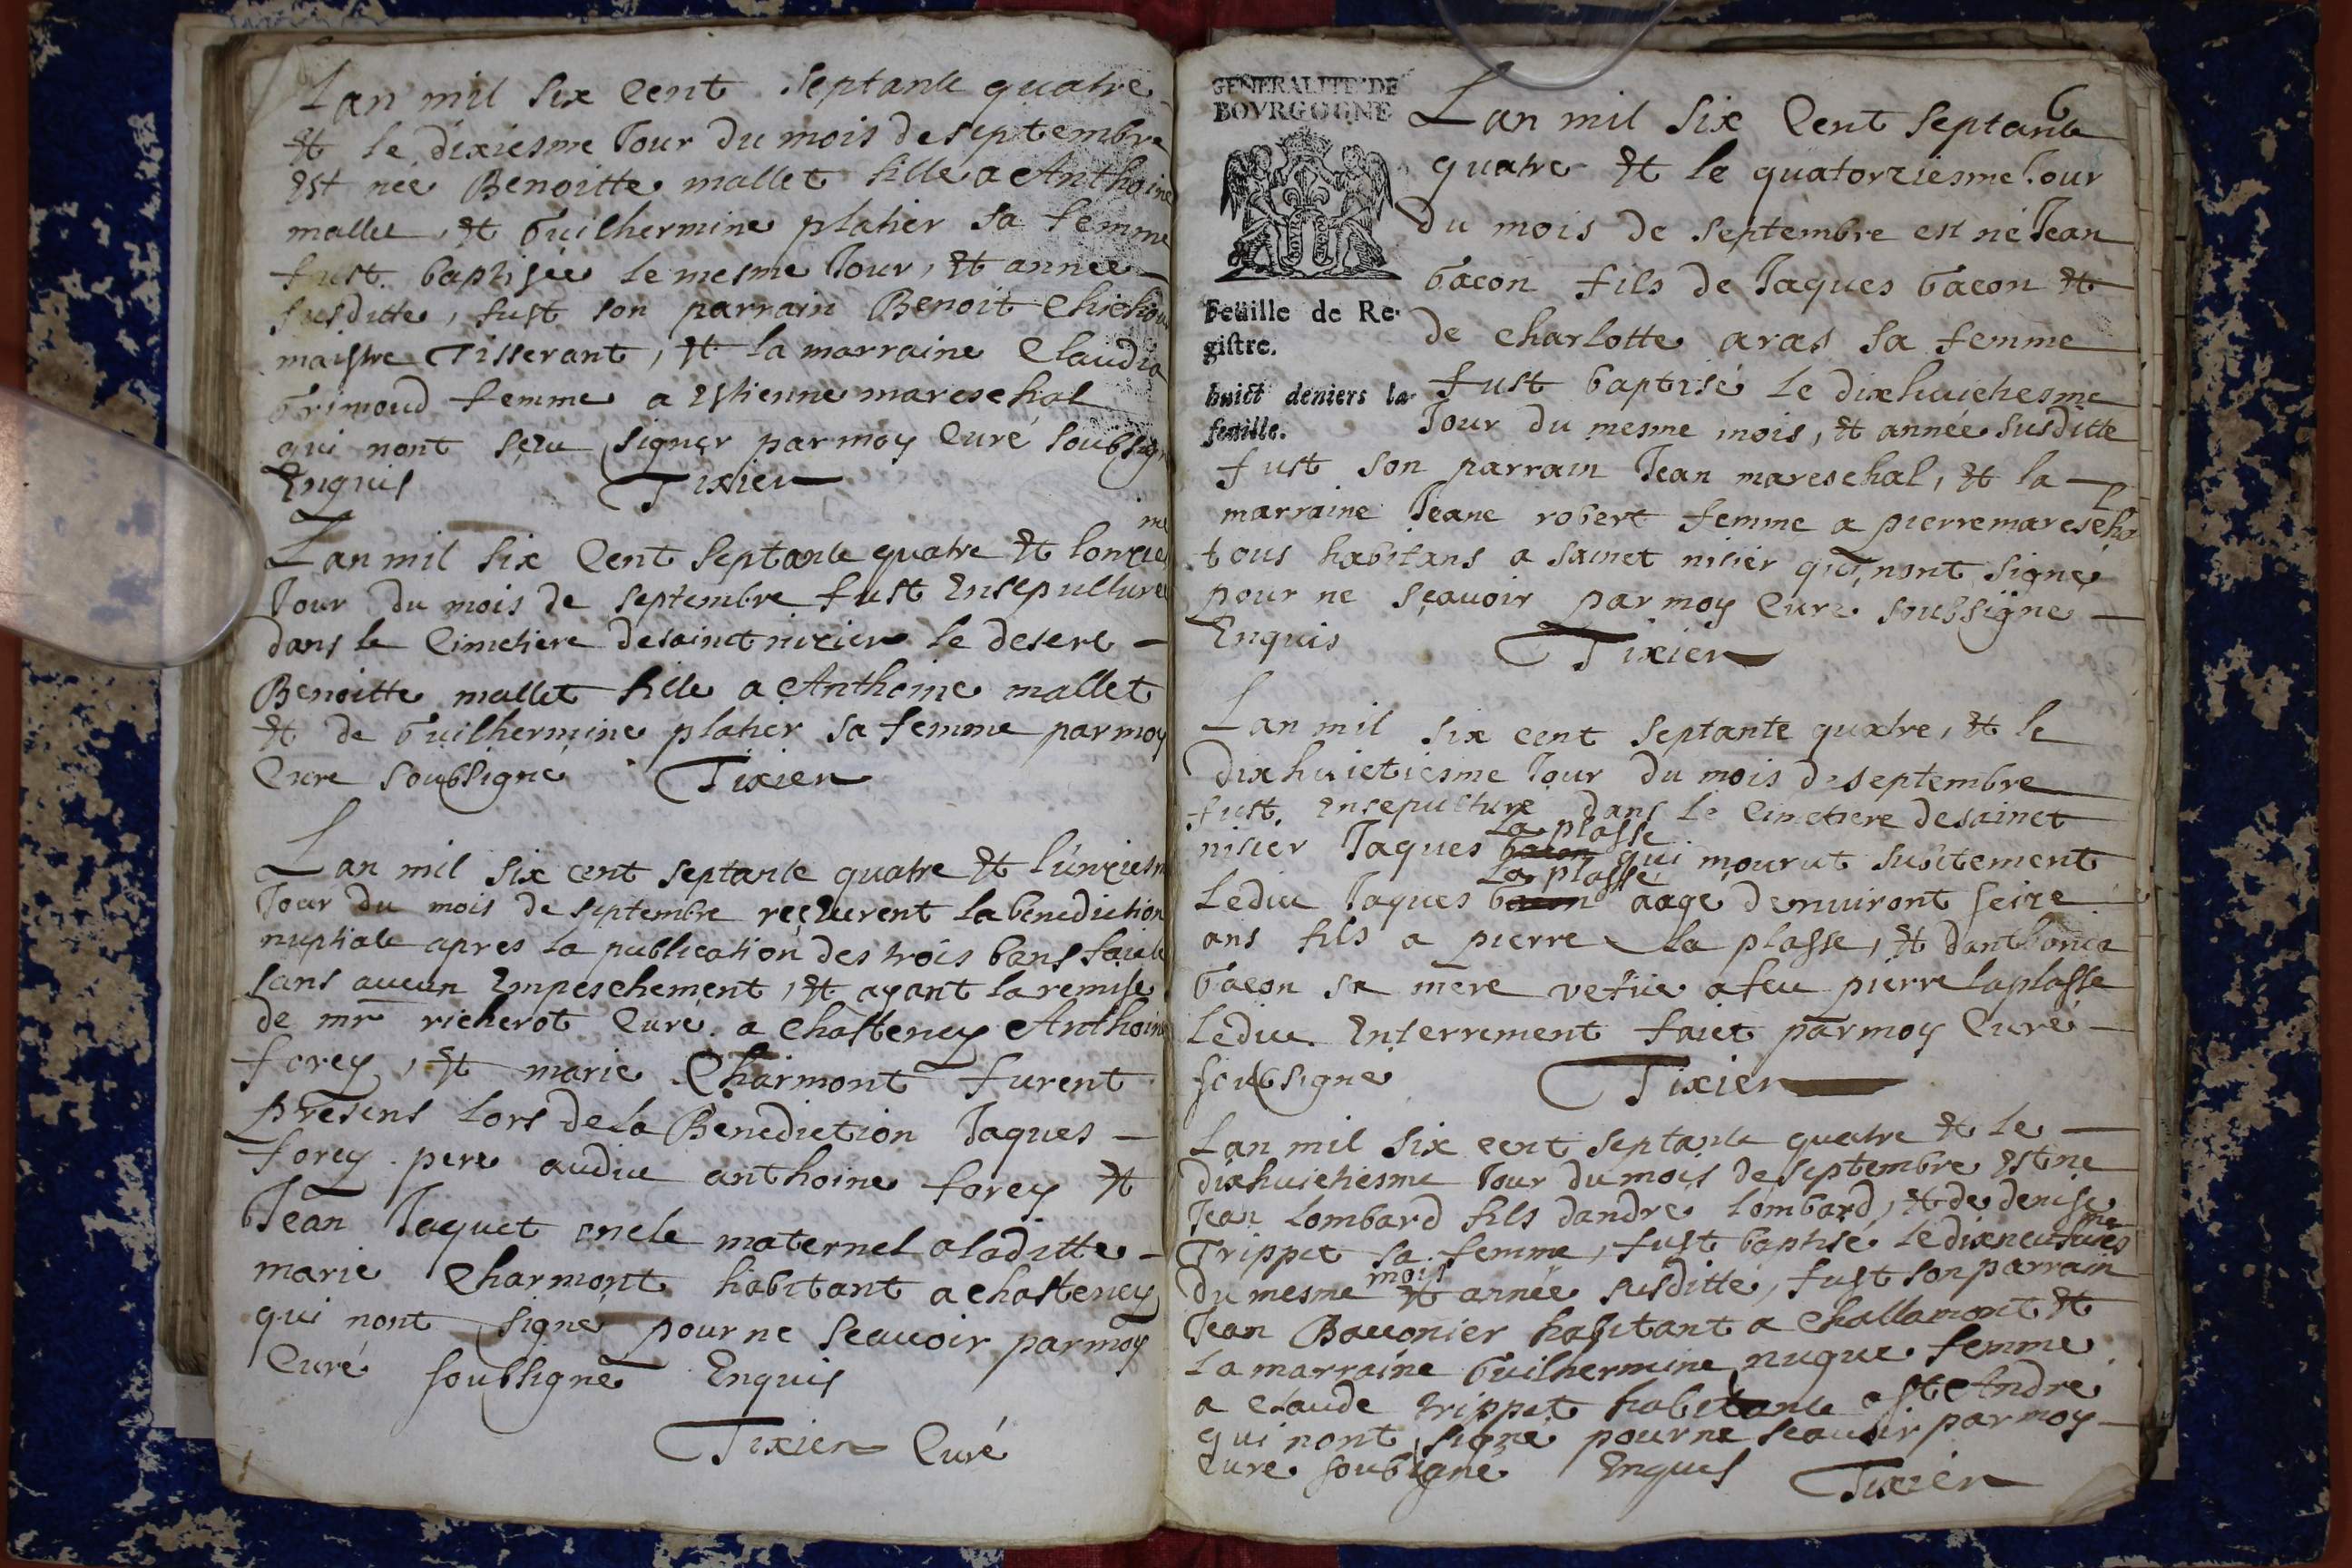 Lan mil six Cent septante quatre
et le dixiesme Jour du mois de septembre
est neé Benoitte mallet fille a Anthoine
mallet, et Guilhermine platier sa femme
fust baptiseé le mesme Jour, et année
susditte, fust son parrain Benoit
maistre Tisserant, et la marraine Claudia
Grimoud femme a Estienne mareschal
qui nont sceu signer par moy Curé soubsigne
Enquis Tixier
Lan mil six Cent septante quatre et lonziesme
Jour du mois de septembre fust Ensepulturee
dans le Cimetiere de sainct nizier le desert
Benoitte mallet fille a Anthoine mallet
et de Guilhermine platier sa femme par moy
Cure soubsigne Tixier
Lan mil six cent septante quatre et l'unziesm
Jour du mois de septembre reçeurent la benediction
nuptiale apres la publication des trois bans faicte
sans aucun Empeschement, et ayant la remise
de mr richerot Curé a Chasteney Anthoine
forey, et marie Charmont furent
presens lors de la Benediction Jaques
forey pere audict anthoine forey et
Jean Jaquet oncle maternel a laditte
marie Charmont habitant a chasteney
qui nont signé pour ne sçauoir par moy
Curé soubsigne Enquis
Tixier Curé
6
GENERALITE DE
BOVRGOGNE
Feuille de Re-
gistre.
huict deniers la
feuille.
Lan mil six Cent septante
quatre et le quatorziesme Jour
du mois de septembre est né Jean
Gacon fils de Jaques Gacon et
de Charlotte aras sa femme
fust baptisé le dixhuictiesme
Jour du mesme mois, et année susditte
fust son parrain Jean mareschal, et la
marraine Jeane robert femme a pierre mareschal
tous habitans a sainct nisier qui nont signé
pour ne sçauoir par moy Curé soubsigne
Enquis Tixier
Lan mil six cent septante quatre, et le
dixhuictiesme Jour du mois de septembre
fust Ensepulture dans le Cimetiere de sainct
nisier Jaques gacon La plasse qui mourut subitement
Ledict Jaques gacon La plasse aage denuiront seize
ans fils a pierre La plasse, et danthonia
Gacon sa mere vefue a feu pierre laplasse
Ledict Enterrement faict par moy Curé
soubsigne Tixier
Lan mil six cent septante quatre et le
dixhuictiesme Jour du mois de septembre Est ne
Jean Lombard fils dandre Lombard, et de denise
Trippet sa femme, fust baptisé le dixneufuiesme
du mesme mois et année susditte, fust son parrain
Jean Bauonier habitant a Challamont et
la marraine Guilhermine nugue femme
a Claude trippet habitante a St Andre
qui nont signé pour ne sçauoir par moy
Cure soubsigné Enquis Tixier